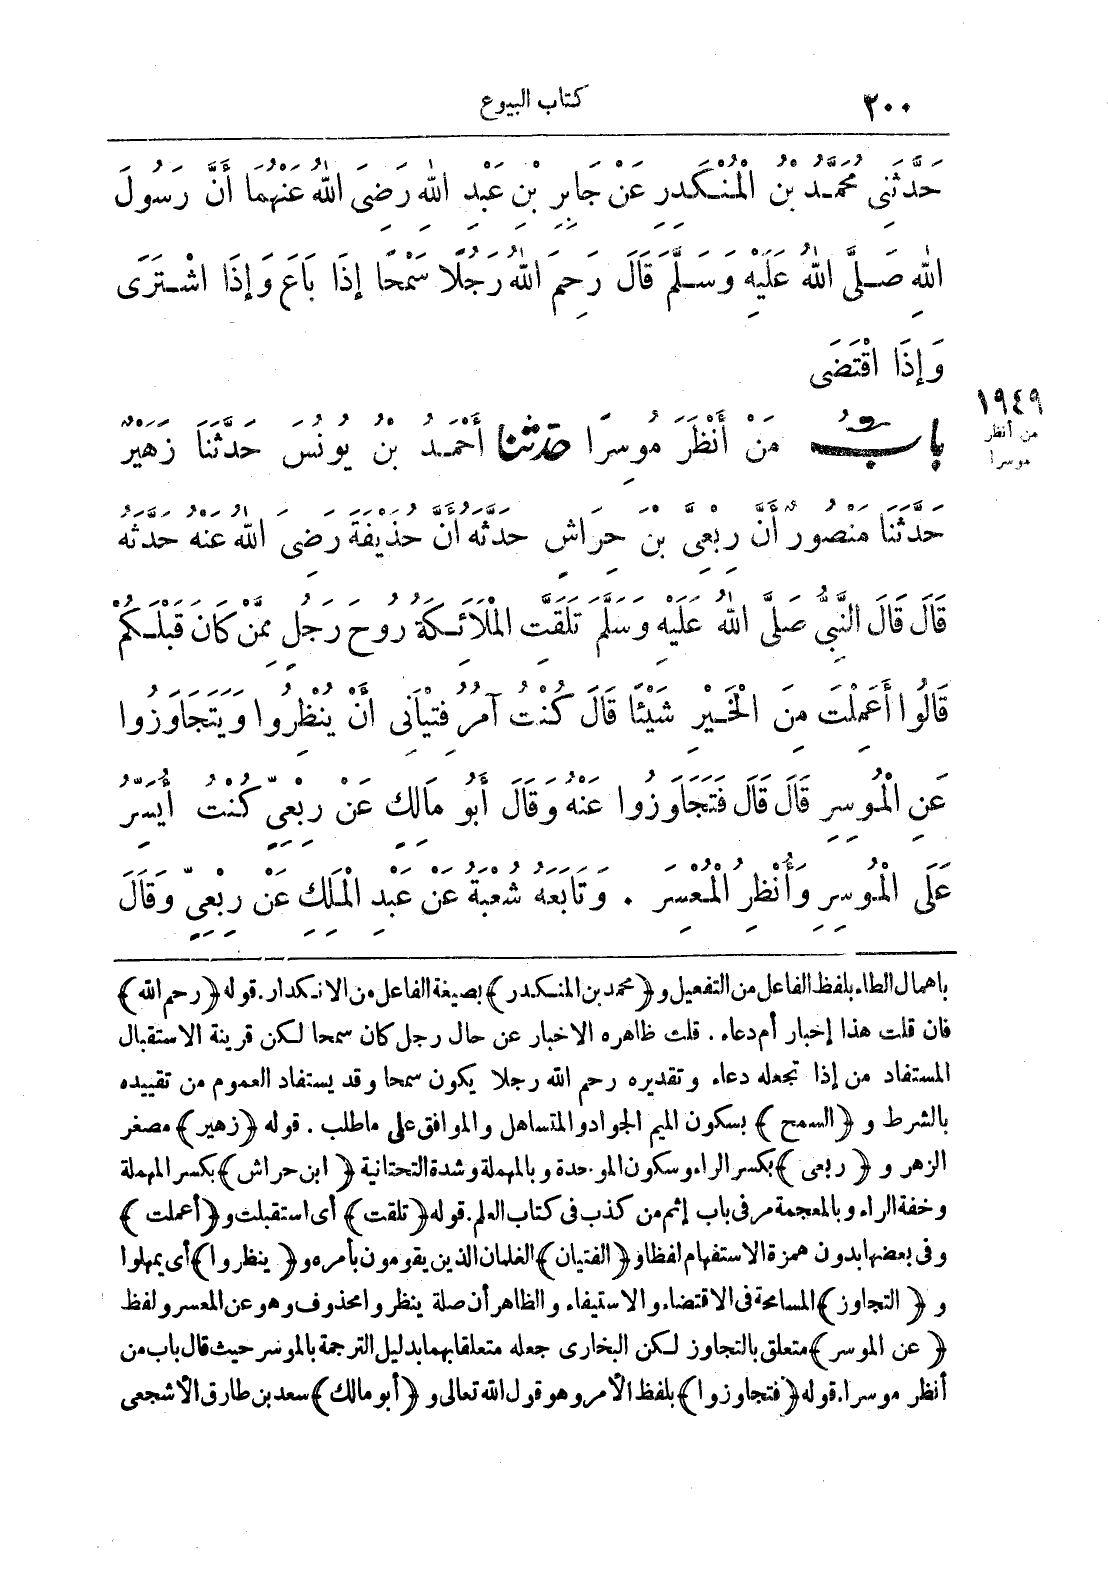 ٢٠٠ كتاب البيوع
حَدَّثَنِى مُحَمَّدُ بْنُ الْمُنْكَدِرِ عَنْ جَابِرِ بْنِ عَبْدِ اللهِ رَضِىَ اللهُ عَنْهُمَا أَنَّ رَسُولَ
اللهِ صَلَّى اللهُ عَلَيْهِ وَسَلَّمَ قَالَ رَحِمَ اللهُ رَجُلًا سَمْحًا إِذَا بَاعَ وَإِذَا اشْتَرَى
وَإِذَا اقْتَضَى
١٩٤٩
من أنظر
موسرا
بَابُ مَنْ أَنْظَرَ مُوسِرًا حَدَّثَنَا أَحْمَدُ بْنُ يُونُسَ حَدَّثَنَا زُهَيْرٌ
حَدَّثَنَا مَنْصُورٌ أَنَّ رِبْعِىَّ بْنَ حِرَاشٍ حَدَّثَهُ أَنَّ حُذَيْفَةَ رَضِىَ اللهُ عَنْهُ حَدَّثَهُ
قَالَ قَالَ النَّبِىُّ صَلَّى اللهُ عَلَيْهِ وَسَلَّمَ تَلَقَّتِ الْمَلَائِكَةُ رُوحَ رَجُلٍ مِمَّنْ كَانَ قَبْلَكُمْ
قَالُوا أَعَمِلْتَ مِنَ الْخَيْرِ شَيْئًا قَالَ كُنْتُ آمُرُ فِتْيَانِى أَنْ يُنْظِرُوا وَيَتَجَاوَزُوا
عَنِ الْمُوسِرِ قَالَ قَالَ فَتَجَاوَزُوا عَنْهُ وَقَالَ أَبُو مَالِكٍ عَنْ رِبْعِىٍّ كُنْتُ أُيَسِّرُ
عَلَى الْمُوسِرِ وَأُنْظِرُ الْمُعْسِرَ . وَتَابَعَهُ شُعْبَةُ عَنْ عَبْدِ الْمَلِكِ عَنْ رِبْعِىٍّ وَقَالَ
باهمال الطاء بلفظ الفاعل من التفعيل و﴿محمد بن المنكدر﴾ بصيغة الفاعل من الانكدار. قوله ﴿رحم الله﴾
فان قلت هذا إخبار أم دعاء . قلت ظاهره الاخبار عن حال رجل كان سمحا لكن قرينة الاستقبال
المستفاد من إذا تجعله دعاء وتقديره رحم الله رجلا يكون سمحا وقد يستفاد العموم من تقييده
بالشرط و ﴿السمح﴾ بسكون الميم الجواد والمتساهل والموافق على ما طلب . قوله ﴿زهير﴾ مصغر
الزهر و ﴿ربعى﴾ بكسر الراء وسكون الموحدة وبالمهملة وشدة التحتانية ﴿ابن حراش﴾ بكسر المهملة
وخفة الراء وبالمعجمة مر فى باب إثم من كذب فى كتاب العلم. قوله ﴿تلقت﴾ أى استقبلت و﴿أعملت﴾
وفى بعضها بدون همزة الاستفهام لفظا و﴿الفتيان﴾ الغلمان الذين يقومون بأمره و﴿ينظروا﴾ أى يمهلوا
و ﴿التجاوز﴾ المسامحة فى الاقتضاء والاستيفاء والظاهر أن صلة ينظروا محذوف وهو عن المعسر ولفظ
﴿عن الموسر﴾ متعلق بالتجاوز لكن البخارى جعله متعلقا بهما بدليل الترجمة بالموسر حيث قال باب من
أنظر موسرا. قوله ﴿فتجاوزوا﴾ بلفظ الأمر وهو قول الله تعالى و ﴿أبو مالك﴾ سعد بن طارق الأشجعى